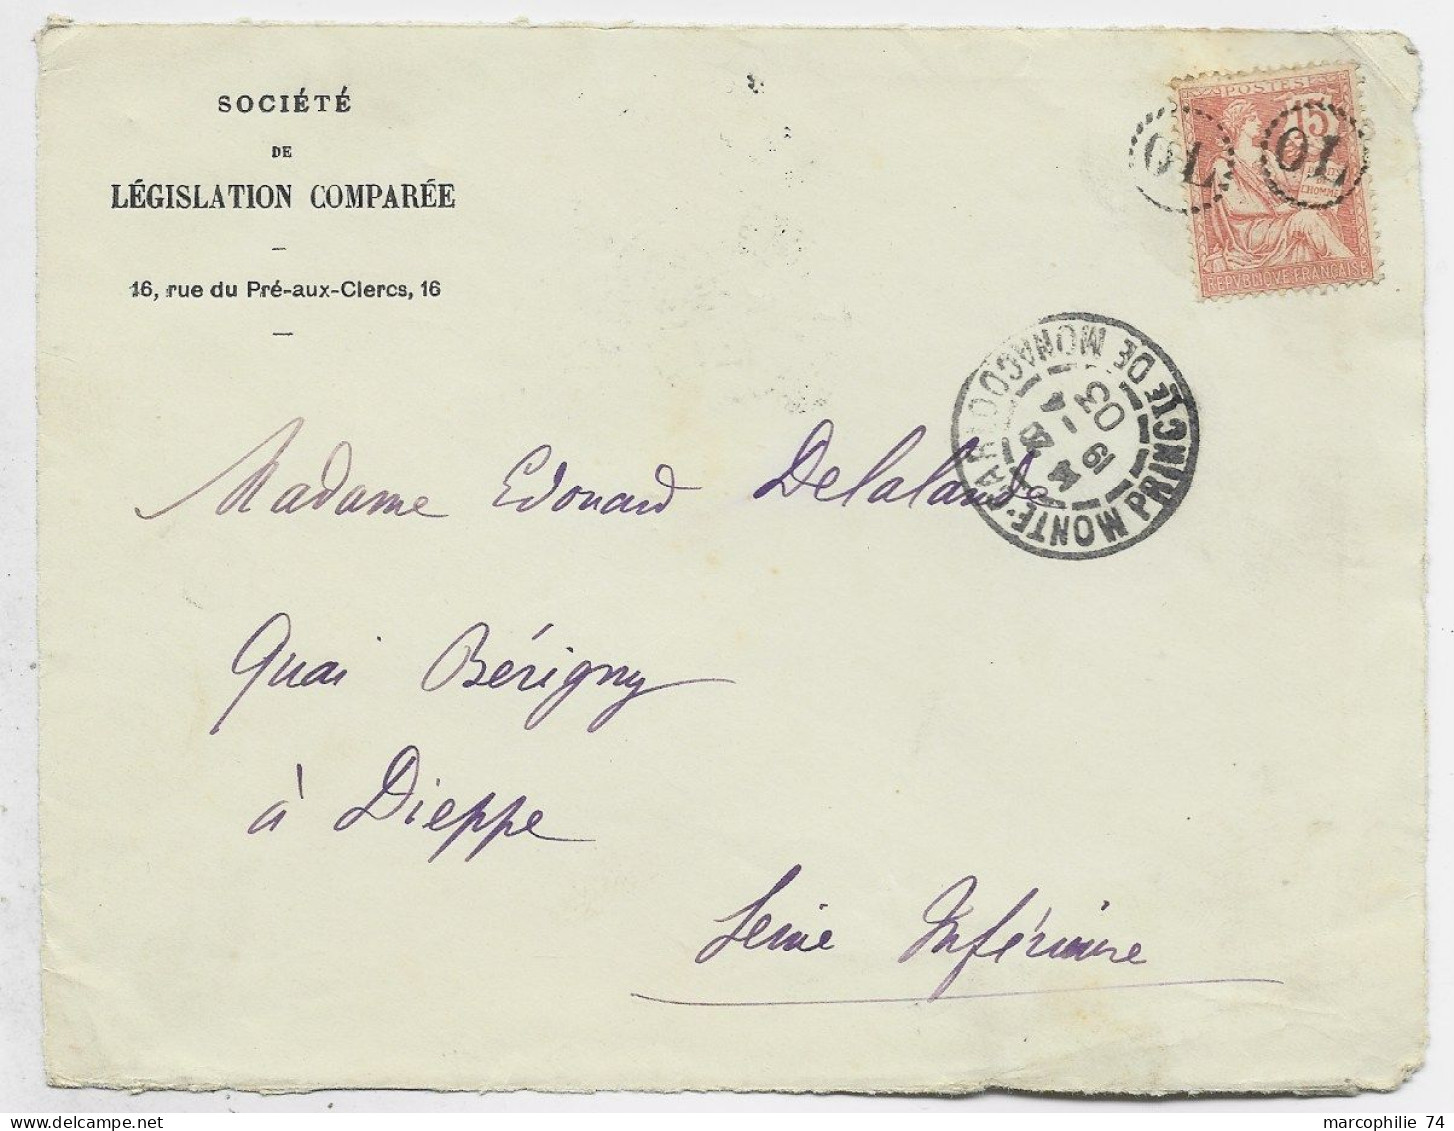 SOCIÉTÉ
DE
LÉGISLATION COMPARÉE
16, rue du Pré-aux-Clercs, 16
POSTES
15
OL
OL
L'HOMME
REPVBLIQVE FRANÇAISE
MONTE-CARLO PRINCIPTÉ DE MONACO
19
03
Madame Edouard Delalande
Quai Bérigny
à Dieppe
Seine Inférieure
marcophilie 74